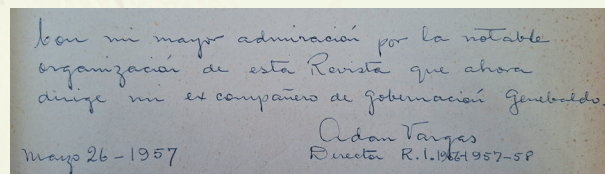 Con mi mayor admiración por la notable
organización de esta Revista que ahora
dirige mi ex compañero de Gobernación Genebaldo.
Adan Vargas
Mayo 26 - 1957
Director R.I. 1957-58